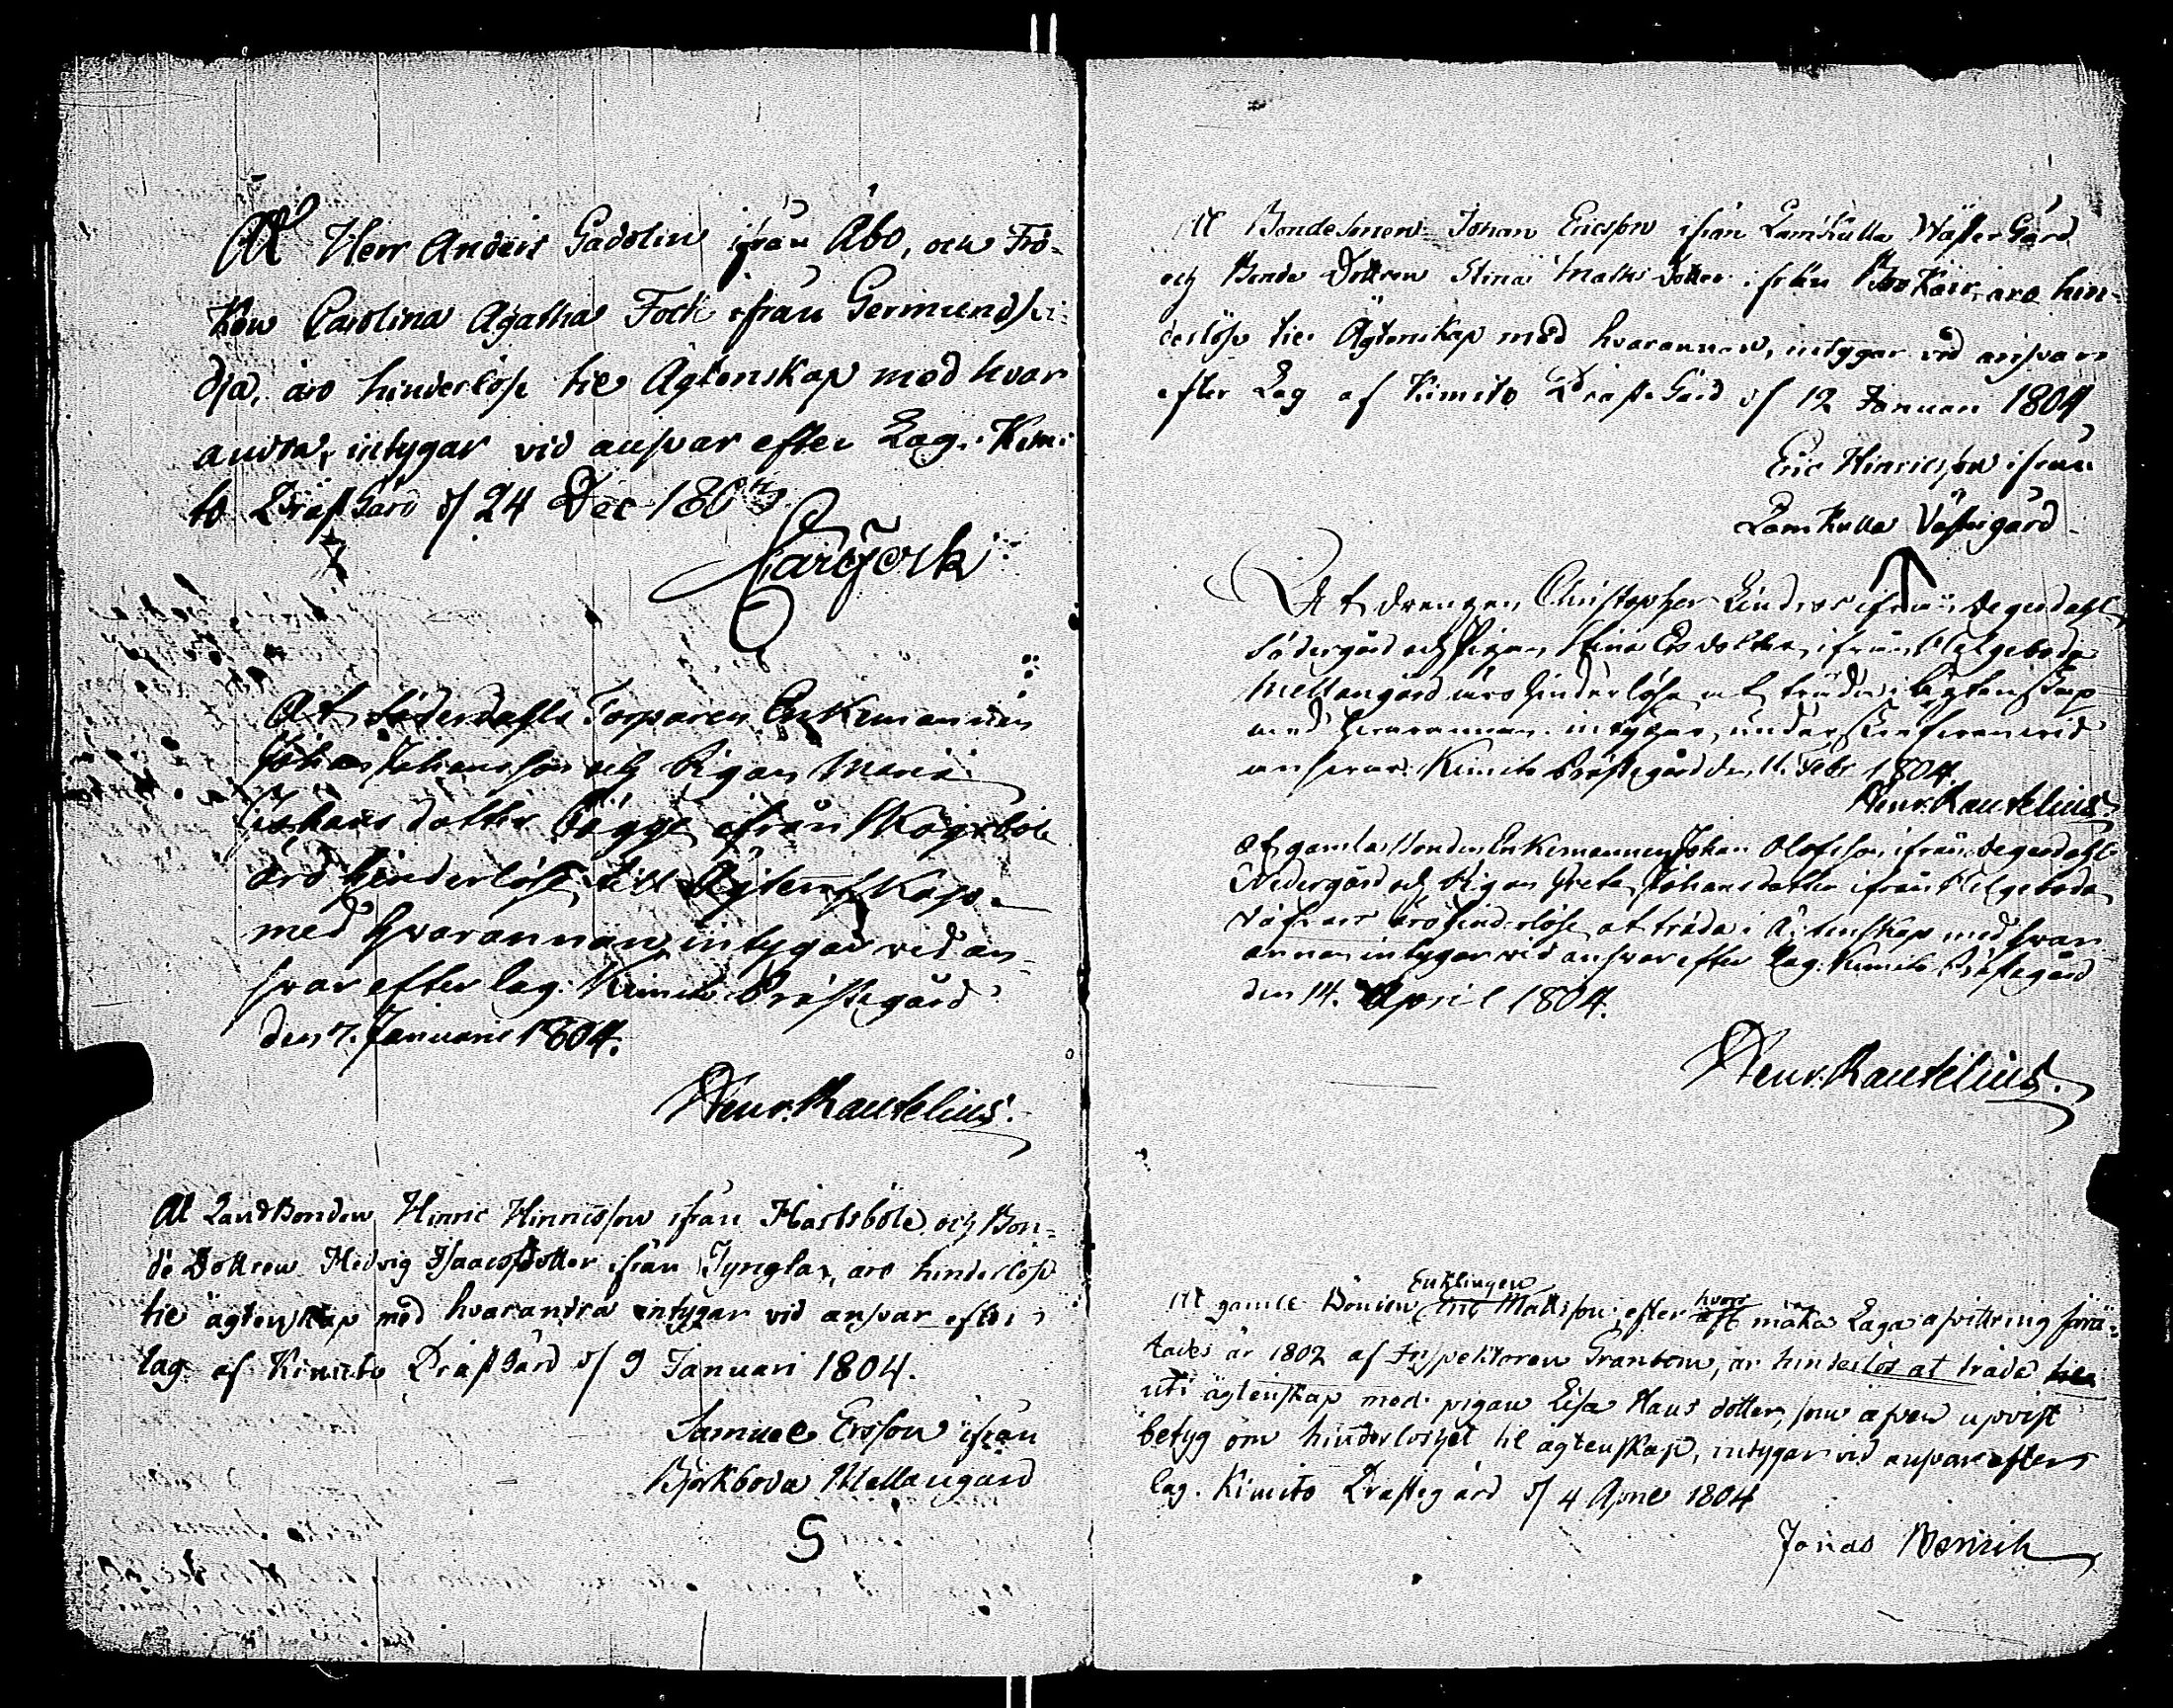 At Herr Anders Gadolin ifrån Åbo, och Frö-
ken Carolina Agatha Fock ifrån Germundsvi-
dja, äro hinderlöse til Ägtenskap med hvar
andra, intygar vid ansvar efter Lag. Kimi-
to PrästGård d 24 Dec 1803
Carl Fock
At Söderdahls Torparen Enkemannen
Johan Johansson och Pigan Maria
Johans dotter ifrån Skogsböle
äro hinderlöse till Ägtenskap
med hvarannan, intygar vid an-
svar efter lag. Kimito Prästegård
den 7. Januarii 1804.
Henr. Rautelius.
At LandBonden Hinric Hinricsson ifrån Hästböle och Bon-
de Dottren Hedvig Isaacsdotter ifrån Tynglax, äro hinderlöse
til ägtenskap med hvarandra intygar vid ansvar efter
lag af Kimito PrästGård d 9 Januari 1804.
Samuel Ersson ifrån
Björkboda Mellangård
S
At BondeSonen Johan Ericsson ifrån Lamkulla WästerGård
och Bonde Dottren Stina Matts Dotter ifrån Bökärr, äro hin-
derlöse til Ägtenskap med hvarannan, intygar vid ansvar
efter Lag af Kimito PrästeGård d 12 Januari 1804
Eric Hinricsson ifrån
Lamkulla Västergård
At drengen Christopher Lindros ifrån Degerdahl
Södergård och Pigan Stina Ersdotter ifrån Helgeboda
Mellangård äro hinderlöse at träda i ägtenskap
med hvarannan. intygar, undersk vid
ansvar. Kimito Prästegård den 11. Febr 1804.
Henr. Rautelius.
At gamla Bonden Enkemannen Johan Olofsson ifrån Degerdahl
Nedergård och Pigan Greta Johansdotter ifrån Helgeboda
äro hinderlöse at träda i Ägtenskap med hvar
annan intygar vid ansvar efter Lag. Kimito Prästegård
den 14. April 1804.
Henr. Rautelius.
Enklingen hvars
At gamle Bonden Eric Mattsson, efter aft maka Laga afvittring förrä-
tades år 1802 af Inspektoren Granbom, är hinderlös at träda til
uti ägtenskap med pigan Lisa Hans dotter, som äfven upvist
betyg om hinderlöshet til ägtenskap, intygar vid ansvar efter
lag. Kimito Prästegård d 4 April 1804
Jonas